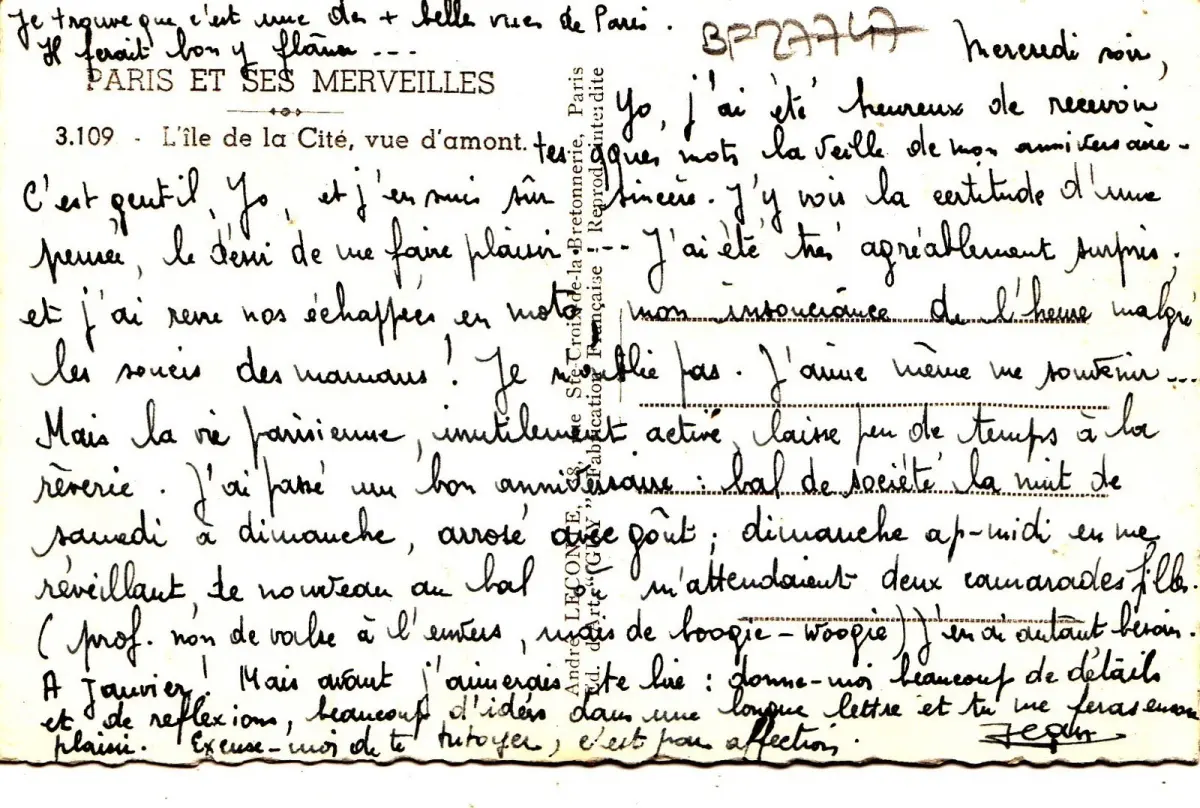 Je trouve que c'est une des + belle vues de Paris.
Il ferait bon y flâner ---
BP27747
PARIS ET SES MERVEILLES
3.109 - L'île de la Cité, vue d'amont.
André LECONTE, 38, rue Ste-Croix-de-la-Bretonnerie, Paris
Ed. d'Art "GUY" Fabrication Française ! Reprod. interdite
Mercredi soir,
Yo, j'ai été heureux de recevoir
tes qques mots la veille de mon anniversaire -
C'est gentil, Yo, et j'en suis sûr sincère. J'y vois la certitude d'une
pensée, le désir de me faire plaisir --- J'ai été très agréablement surpris,
et j'ai revu nos échappées en moto mon insouciance de l'heure malgré
les soucis des mamans ! Je n'oublie pas. J'aime même me souvenir ---
Mais la vie parisienne, inutilement active, laisse peu de temps à la
rêverie. J'ai passé un bon anniversaire : bal de société la nuit de
samedi à dimanche, arrosé avec goût ; dimanche ap-midi en me
réveillant, de nouveau au bal où m'attendaient deux camarades filles.
(prof. non de valse à l'envers, mais de boogie-woogie) J'en ai autant besoin.
A Janvier ! Mais avant j'aimerais te lire : donne-moi beaucoup de détails
et de reflexions, beaucoup d'idées dans une longue lettre et tu me feras encore
plaisir. Excuse-moi de te tutoyer, c'est par affection.
Jean